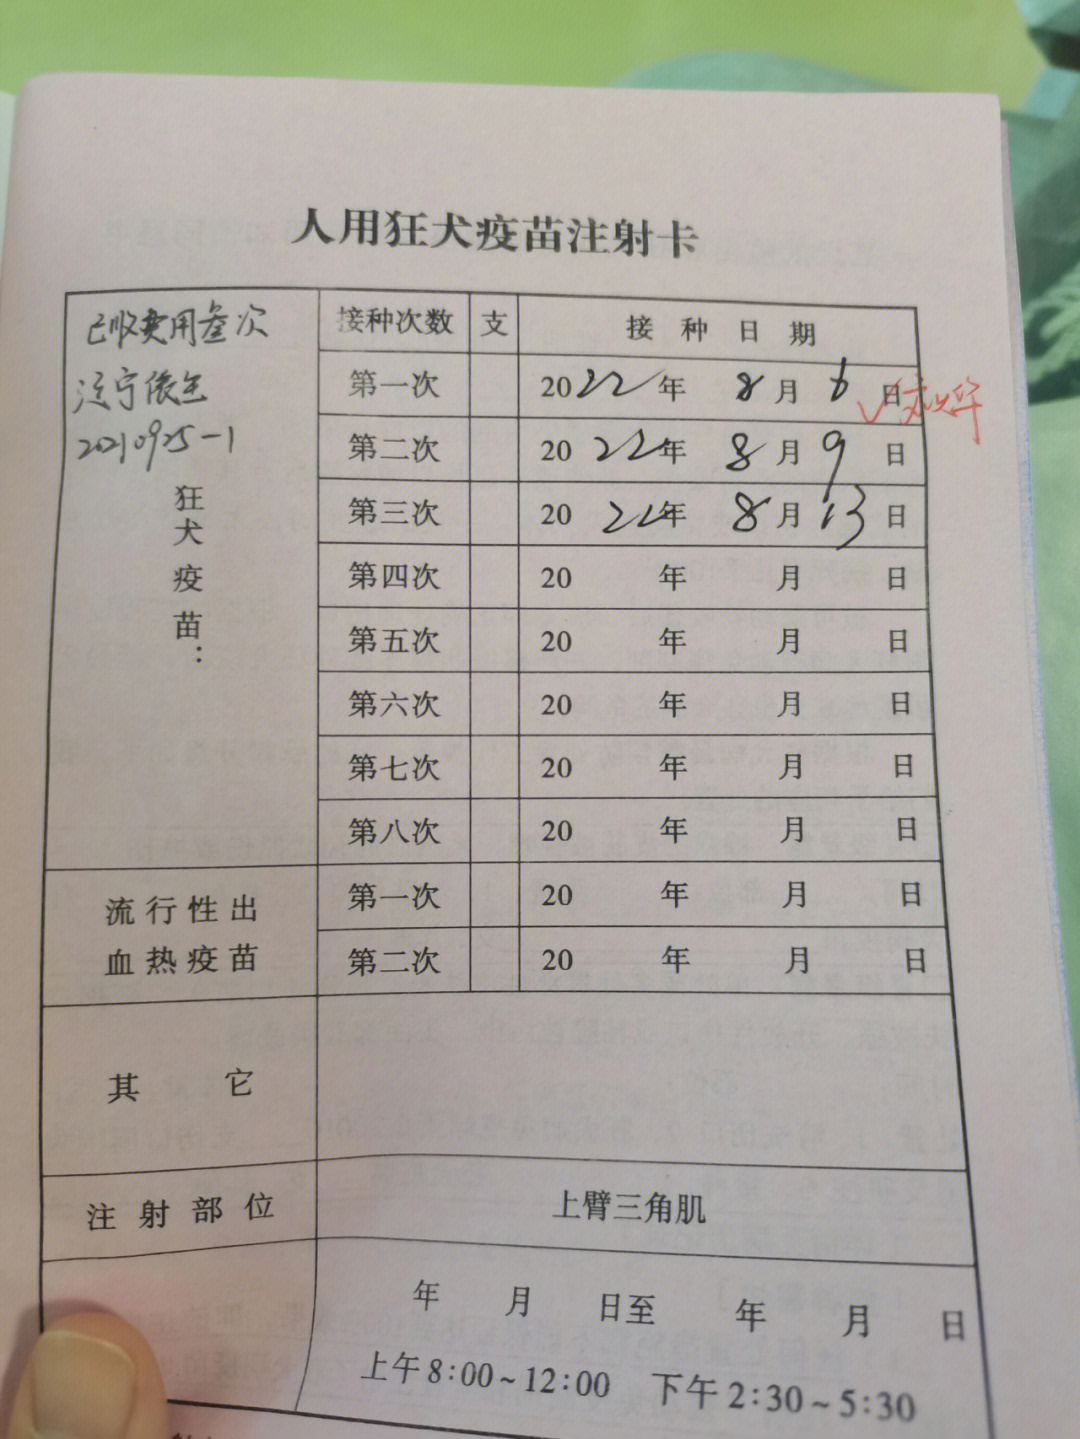 人用狂犬疫苗注射卡
已收费用叁次
辽宁依生
20210925-1
狂犬疫苗：
接种次数 支 接种日期
第一次 2022年 8月 6日 √
第二次 2022年 8月 9日
第三次 2022年 8月 13日
第四次 20 年 月 日
第五次 20 年 月 日
第六次 20 年 月 日
第七次 20 年 月 日
第八次 20 年 月 日
流行性出
血热疫苗
第一次 20 年 月 日
第二次 20 年 月 日
其它
注射部位 上臂三角肌
年 月 日至 年 月 日
上午8:00~12:00 下午2:30~5:30